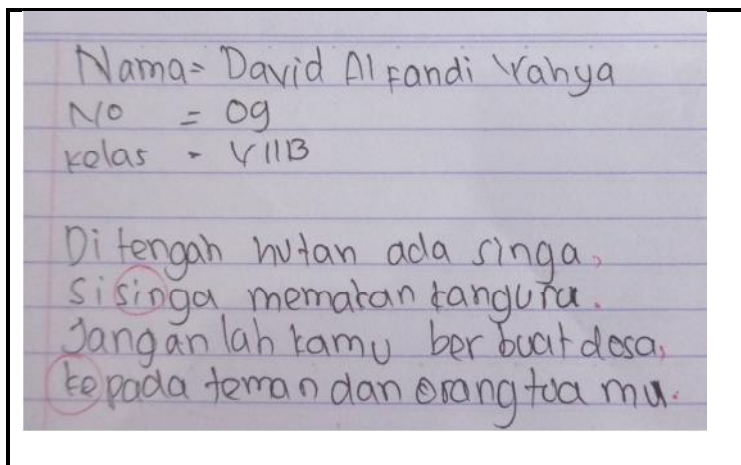 Nama = David Alfandi Yahya
No = 09
Kelas = VIIB
Di tengah hutan ada singa,
Si singa mematan tangura.
Jangan lah kamu ber buat dosa,
kepada teman dan orang tua mu.